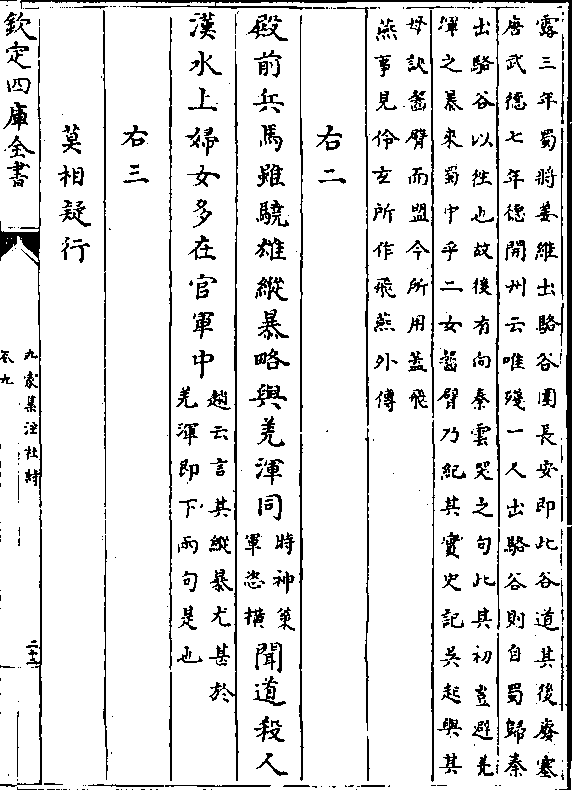 露三年蜀將姜維出駱谷圍長安即此谷道其後廢塞
唐武德七年德開州云唯殘一人出駱谷則自蜀歸秦
出駱谷以徃也故後有向秦雲哭之句此其初豈避羌
渾之暴來蜀中乎二女齧臂乃紀其實史記吳起與其
母訣齧臂而盟今所用蓋飛
燕事見伶玄所作飛燕外傳
右二
殿前兵馬雖驍雄縱暴略與羌渾同時神策軍恣橫聞道殺人
漢水上婦女多在官軍中趙云言其縱暴尤甚於羌渾即下兩句是也
右三
莫相疑行
欽定四庫全書
九家集注杜詩
卷九
二十二